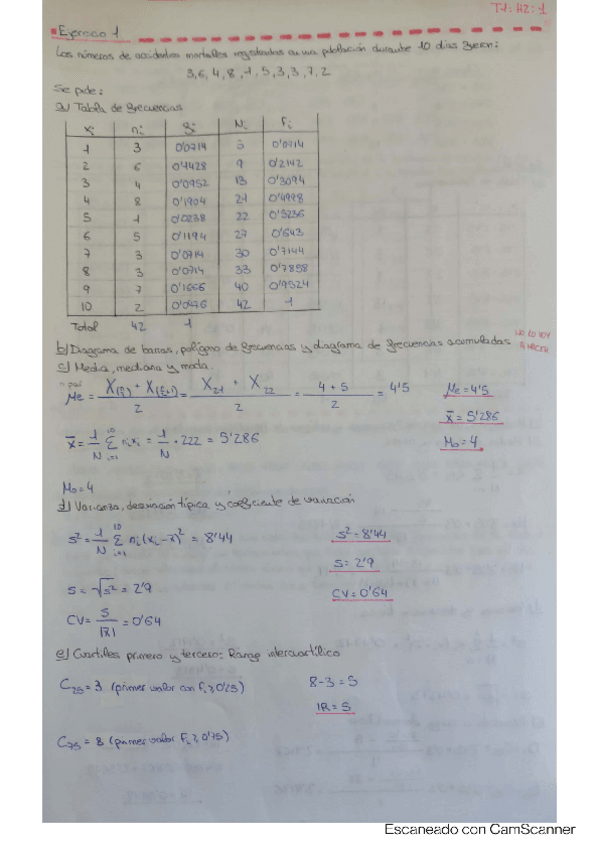 T1: HZ: 1
Ejercicio 1
Los números de accidentes mortales registrados en una población durante 10 días fueron:
3, 6, 4, 8, 1, 5, 3, 3, 7, 2
Se pide:
a) Tabla de frecuencias
xi ni fi Ni Fi
1 3 0'0714 3 0'0714
2 6 0'1428 9 0'2142
3 4 0'0952 13 0'3094
4 8 0'1904 21 0'4998
5 1 0'0238 22 0'5236
6 5 0'1194 27 0'643
7 3 0'0714 30 0'7144
8 3 0'0714 33 0'7858
9 7 0'1666 40 0'9524
10 2 0'0476 42 1
Total 42 1
b) Diagrama de barras, polígono de frecuencias y diagrama de frecuencias acumuladas
c) Media, mediana y moda.
n par
Me = X(n/2) + X(n/2+1) / 2 = X21 + X22 / 2 = 4 + 5 / 2 = 4'5
Me = 4'5
x̄ = 5'286
x̄ = 1/N Σ ni xi = 1/N · 222 = 5'286
Mo = 4
Mo = 4
d) Varianza, desviación típica y coeficiente de variación
s² = 1/N Σ ni (xi - x̄)² = 8'44
s² = 8'44
s = 2'9
s = √s² = 2'9
CV = 0'64
CV = s/|x̄| = 0'64
e) Cuartiles primero y tercero: Rango intercuartílico
C25 = 3 (primer valor con Fi ≥ 0'25)
8 - 3 = 5
IR = 5
C75 = 8 (primer valor Fi ≥ 0'75)
Escaneado con CamScanner